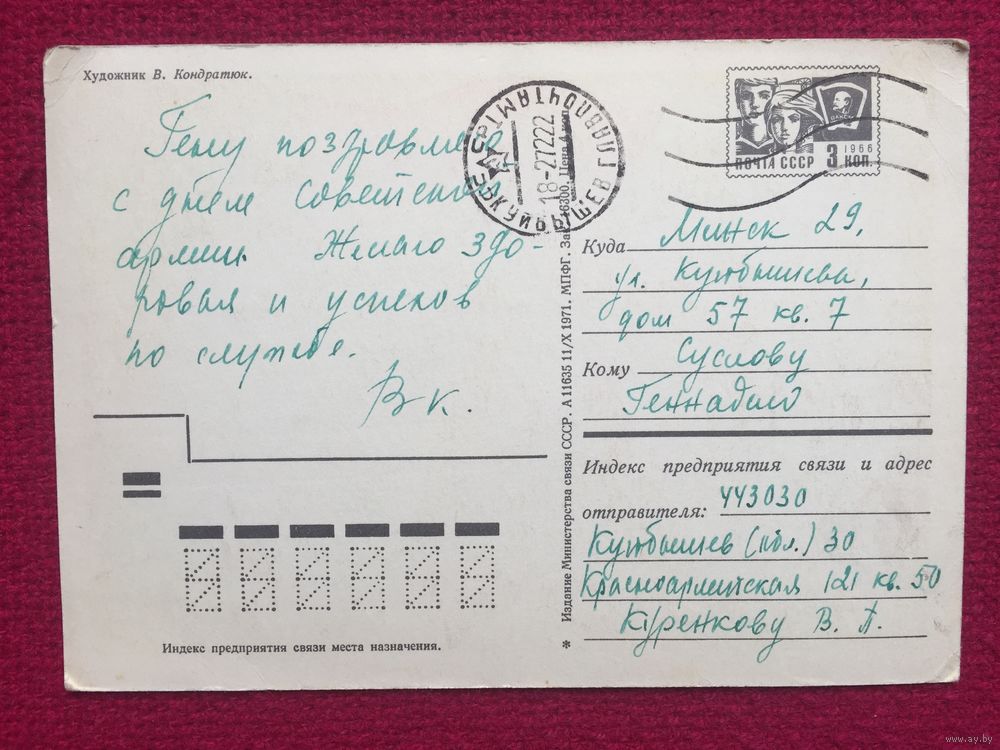 Художник В. Кондратюк.
Гену поздравляю
с днем Советской
армии. Желаю здо-
ровья и успехов
по службе.
Вк.
Индекс предприятия связи места назначения.
КУЙБЫШЕВ ГЛАВПОЧТАМТ
18-27222
Издание Министерства связи СССР. А 11635 11/X 1971. МПФГ. Зак. 46300. Цена 4 коп.
ПОЧТА СССР 3 КОП.
1966
ВЛКСМ
Куда Минск 29,
ул. Куйбышева,
дом 57 кв. 7
Кому Суслову
Геннадию
Индекс предприятия связи и адрес
отправителя: 443030
Куйбышев (обл.) 30
Красноармейская 121 кв. 50
Куренкову В. П.
www.ay.by